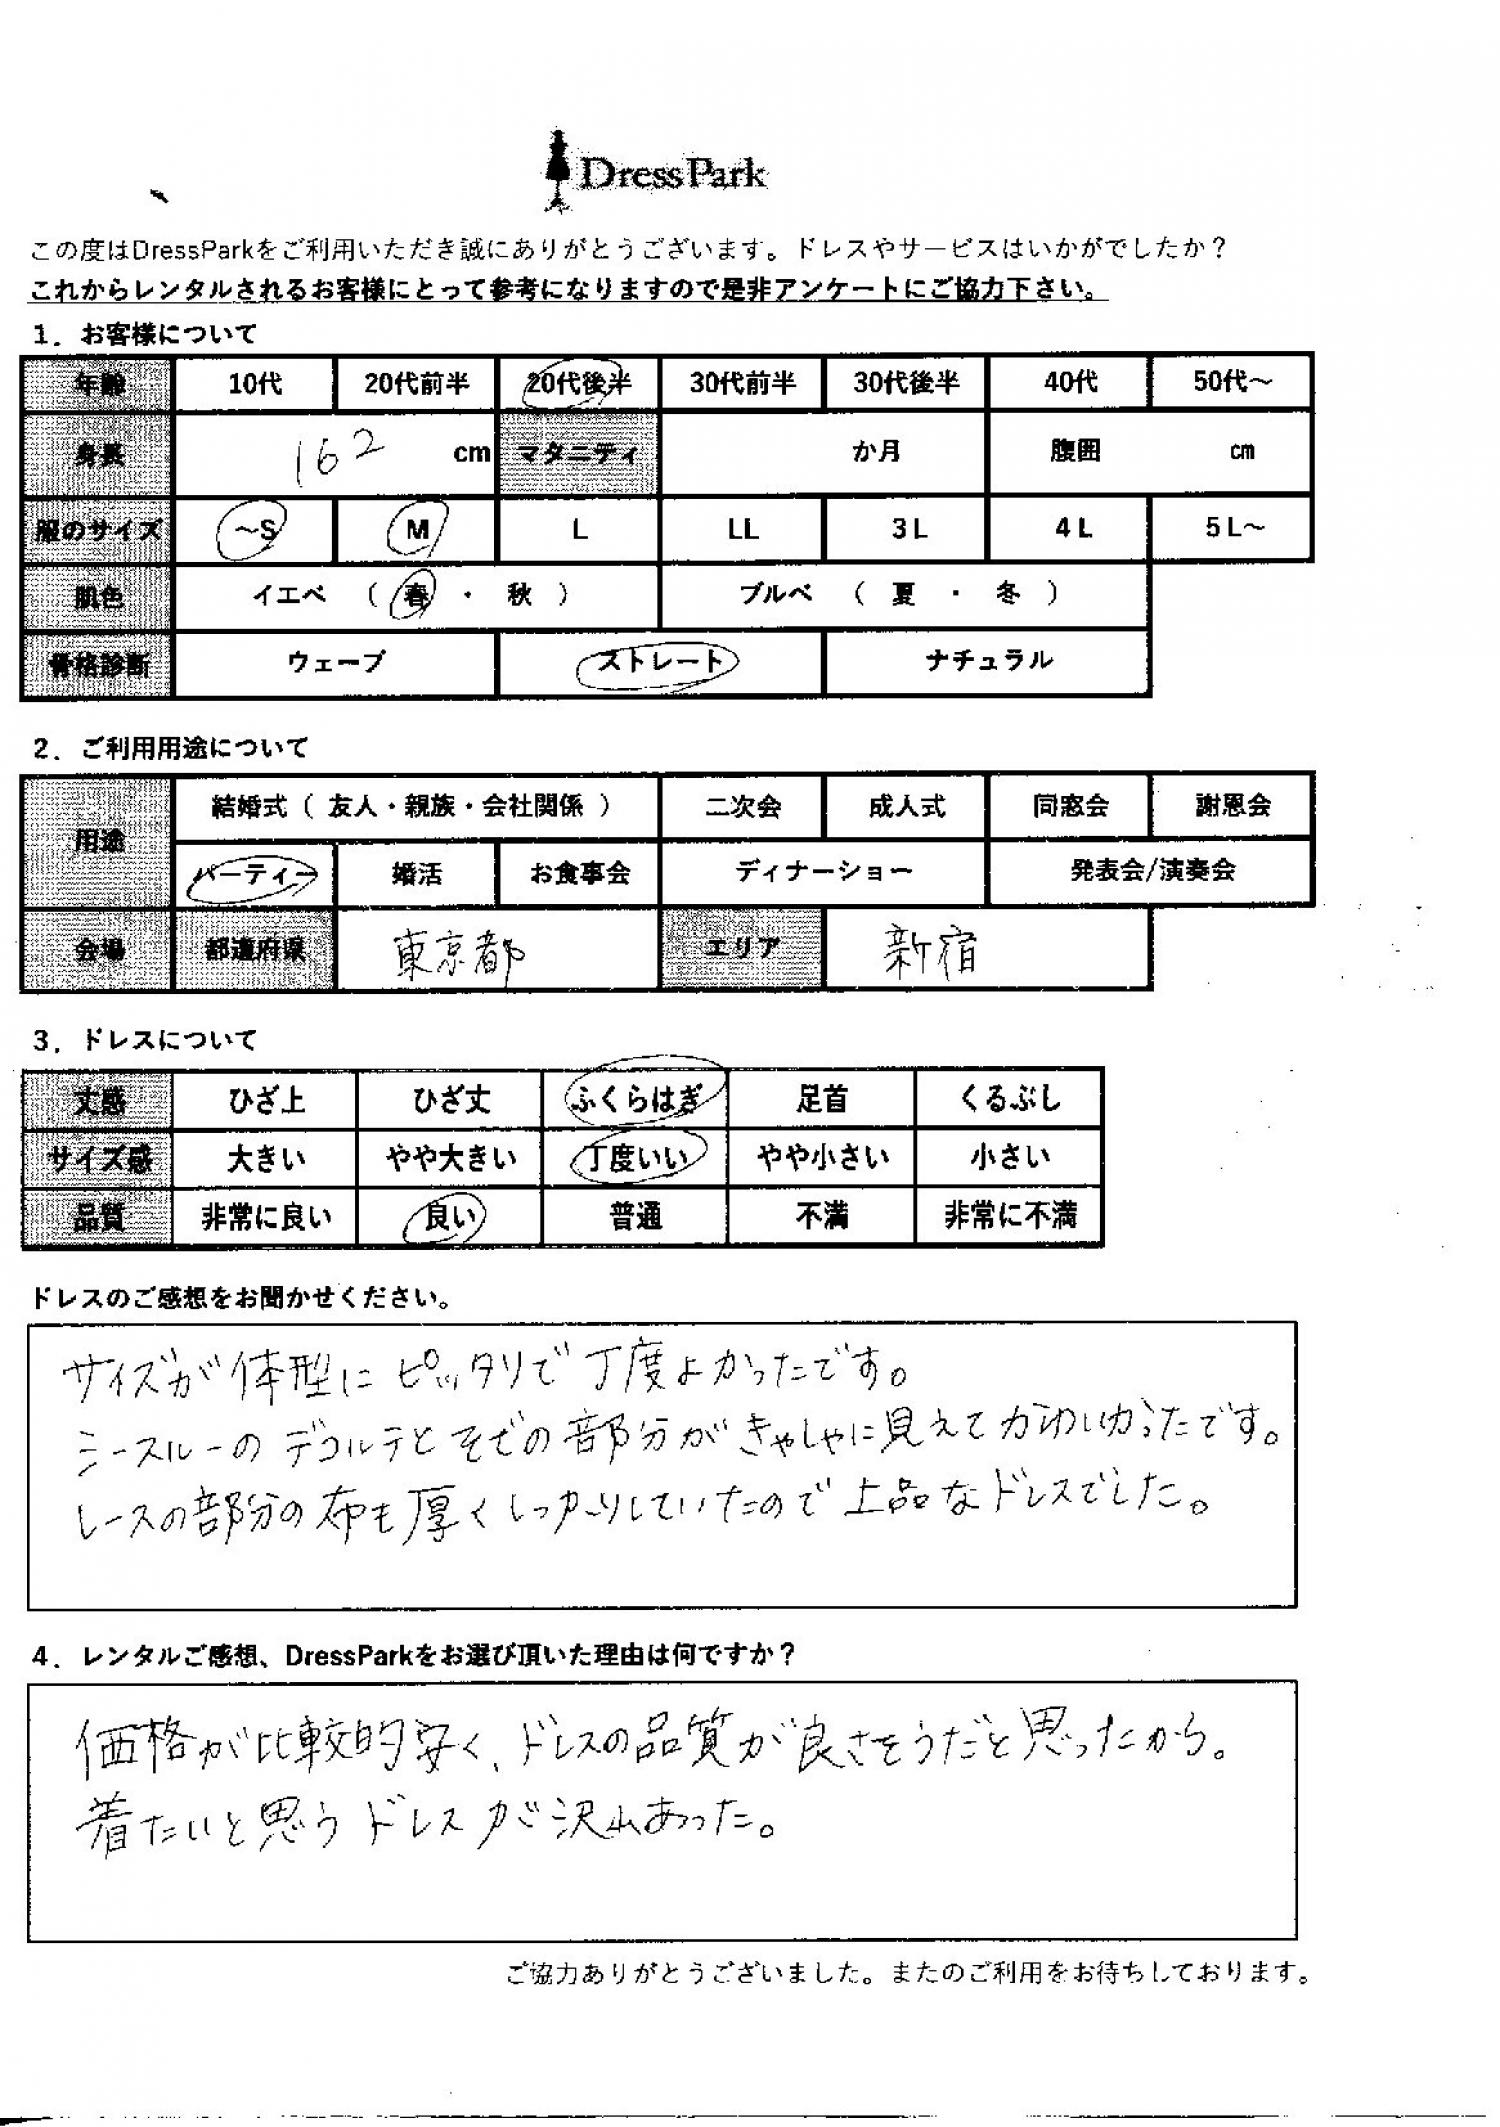 DressPark
この度はDressParkをご利用いただき誠にありがとうございます。ドレスやサービスはいかがでしたか？
これからレンタルされるお客様にとって参考になりますので是非アンケートにご協力下さい。
1．お客様について
年齢 10代 20代前半 20代後半 30代前半 30代後半 40代 50代～
身長 162 cm マタニティ か月 腹囲 cm
服のサイズ ～S M L LL 3L 4L 5L～
肌色 イエベ （ 春 ・ 秋 ） ブルベ （ 夏 ・ 冬 ）
骨格診断 ウェーブ ストレート ナチュラル
2．ご利用用途について
用途 結婚式（ 友人・親族・会社関係 ） 二次会 成人式 同窓会 謝恩会
パーティー 婚活 お食事会 ディナーショー 発表会/演奏会
会場 都道府県 東京都 エリア 新宿
3．ドレスについて
丈感 ひざ上 ひざ丈 ふくらはぎ 足首 くるぶし
サイズ感 大きい やや大きい 丁度いい やや小さい 小さい
品質 非常に良い 良い 普通 不満 非常に不満
ドレスのご感想をお聞かせください。
サイズが体型にピッタリで丁度よかったです。
シースルーのデコルテとそでの部分がきゃしゃに見えてかわいかったです。
レースの部分の布も厚くしっかりしていたので上品なドレスでした。
4．レンタルご感想、DressParkをお選び頂いた理由は何ですか？
価格が比較的安く、ドレスの品質が良さそうだと思ったから。
着たいと思うドレスが沢山あった。
ご協力ありがとうございました。またのご利用をお待ちしております。